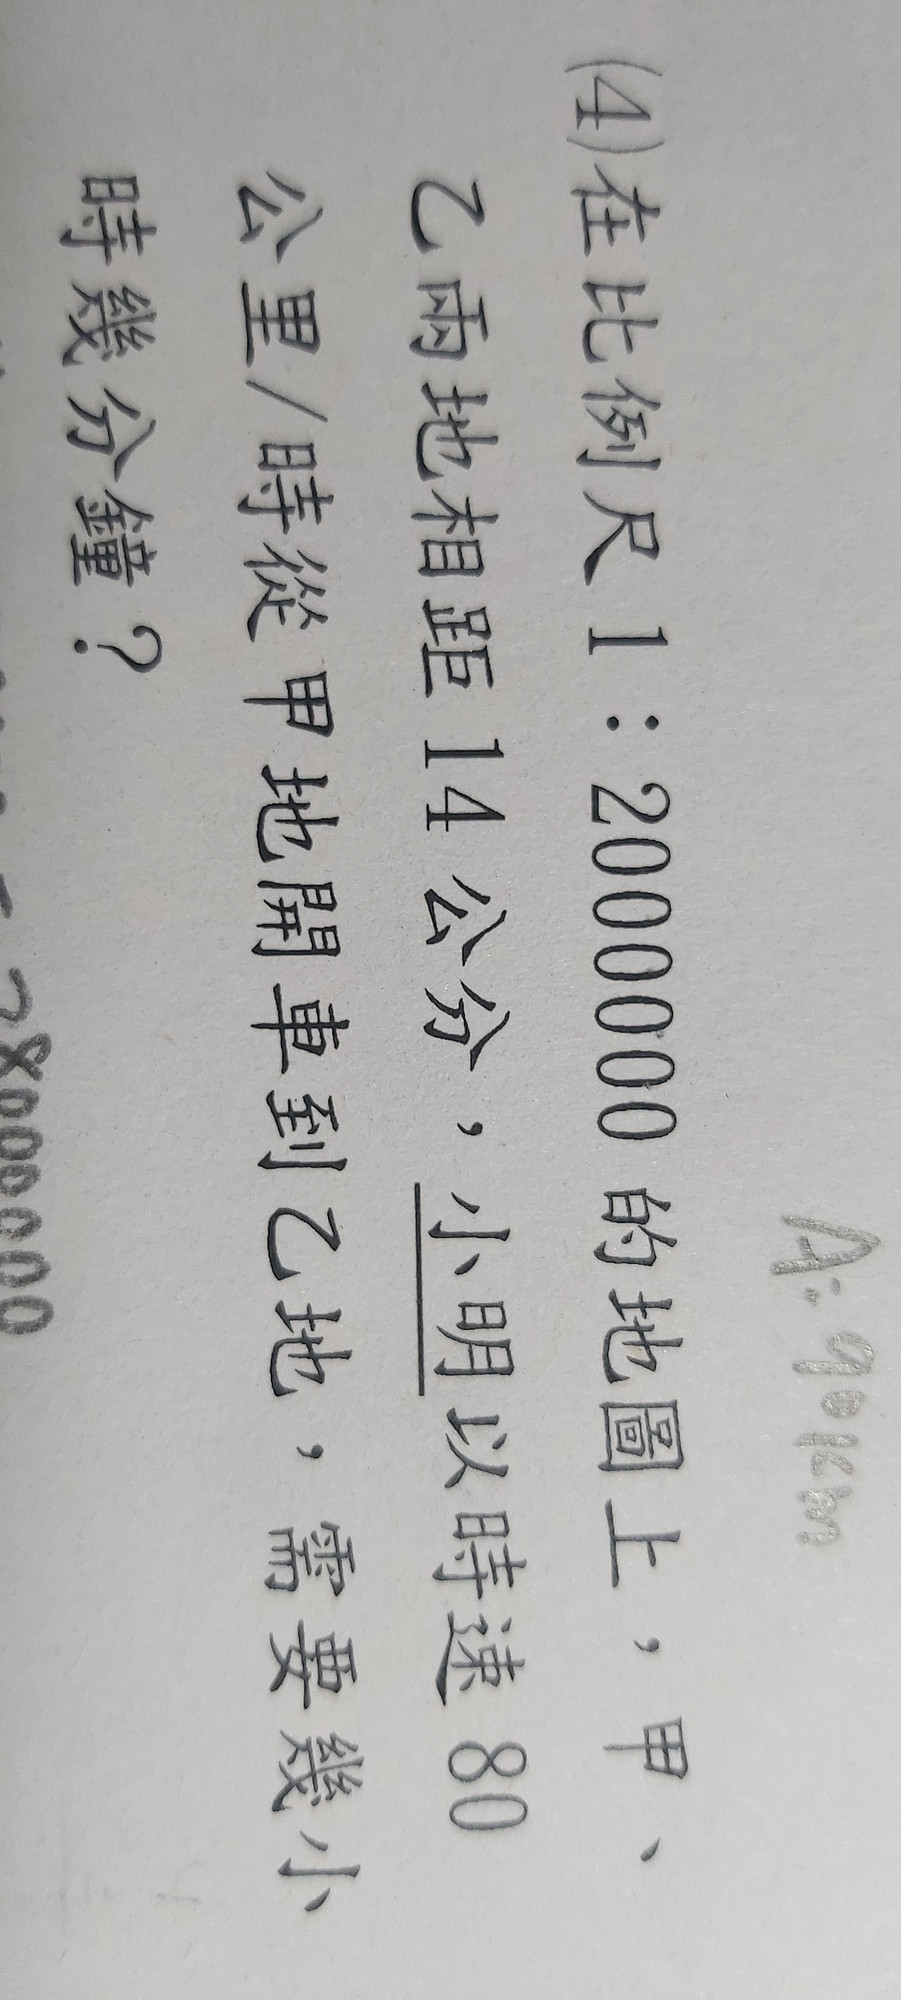 A: 90km
(4)在比例尺1:2000000的地圖上，甲、
乙兩地相距14公分，小明以時速80
公里/時從甲地開車到乙地，需要幾小
時幾分鐘？
28000000